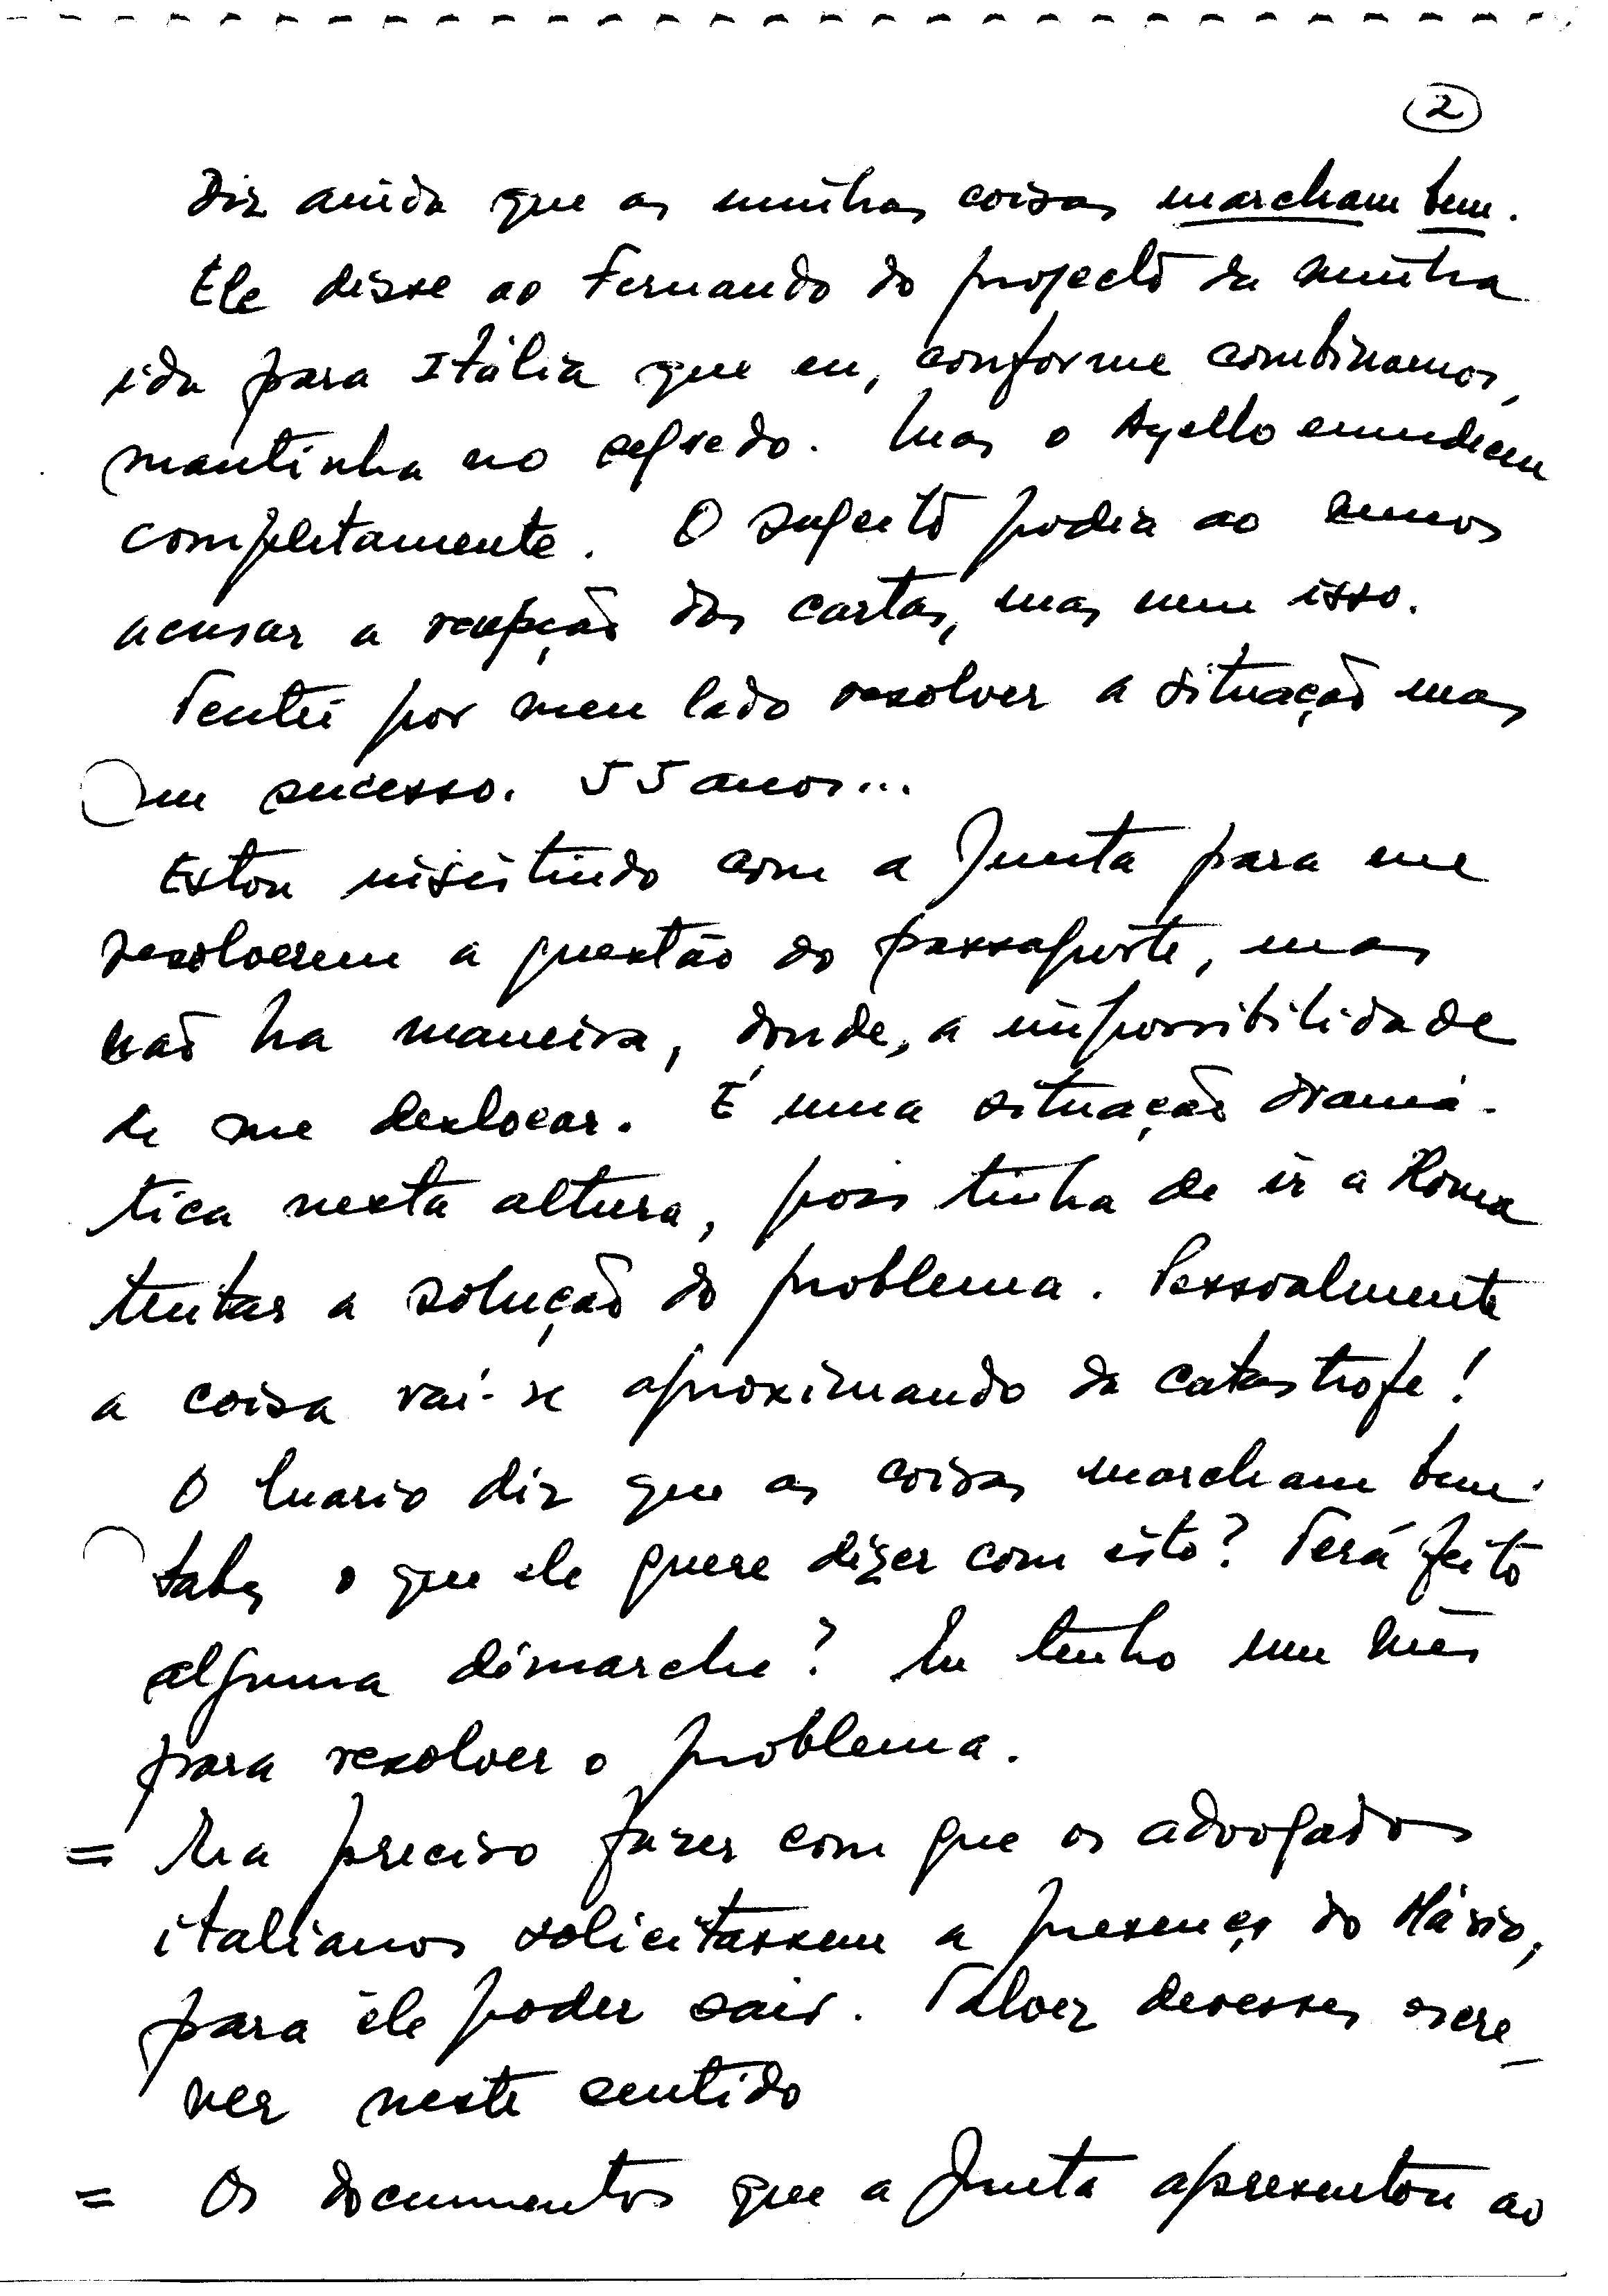 2
Diz ainda que as minhas coisas marcham bem.
Ele disse ao Fernando do projecto da minha
ida para Itália que eu, conforme combinamos,
mantinha no segredo. Mas o Ayello emudeceu
completamente. O sujeito podia ao menos
acusar a recepção das cartas, mas nem isso.
Tentei por meu lado resolver a situação mas
sem sucesso. 55 anos...
Estou insistindo com a Junta para me
resolverem a questão do passaporte, mas
não ha maneira, donde, a impossibilidade
de me deslocar. É uma situação dramá-
tica nesta altura, pois tinha de ir a Roma
tentar a solução do problema. Pessoalmente
a coisa vai-se aproximando da catastrofe!
O Mario diz que as coisas marcham bem.
Sabes o que ele quere dizer com isto? Terá feito
alguma démarche? Eu tenho um mês
para resolver o problema.
= Era preciso fazer com que os advogados
italianos solicitassem a presença do Mário,
para êle poder sair. Talvez devesses escre-
ver neste sentido
= Os documentos que a Junta apresentou ao